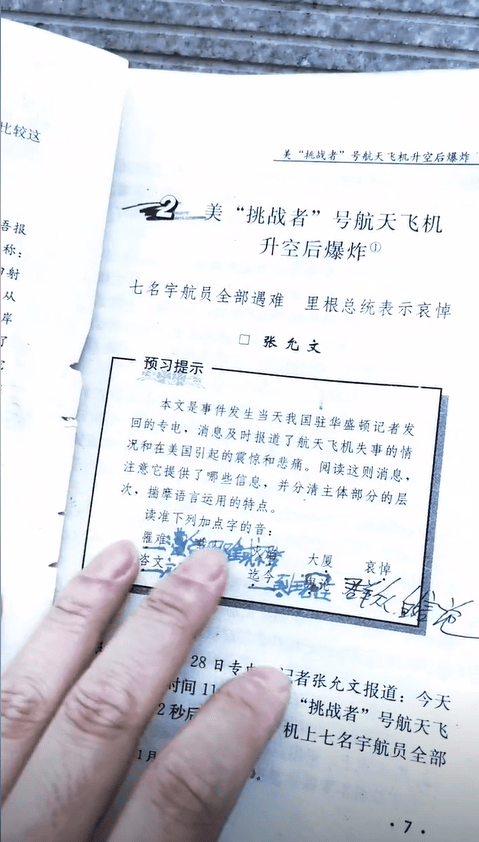 比较这
吾报
称:
射
从
岸
了
美“挑战者”号航天飞机升空后爆炸
2 美“挑战者”号航天飞机
升空后爆炸①
七名宇航员全部遇难 里根总统表示哀悼
□ 张允文
预习提示
本文是事件发生当天我国驻华盛顿记者发
回的专电,消息及时报道了航天飞机失事的情
况和在美国引起的震惊和悲痛。阅读这则消息,
注意它提供了哪些信息,并分清主体部分的层
次,揣摩语言运用的特点。
读准下列加点字的音:
罹难 大厦 哀悼
咨文 迄今
28日专电 记者张允文报道:今天
时间11 “挑战者”号航天飞
2秒后 机上七名宇航员全部
1月
·7·